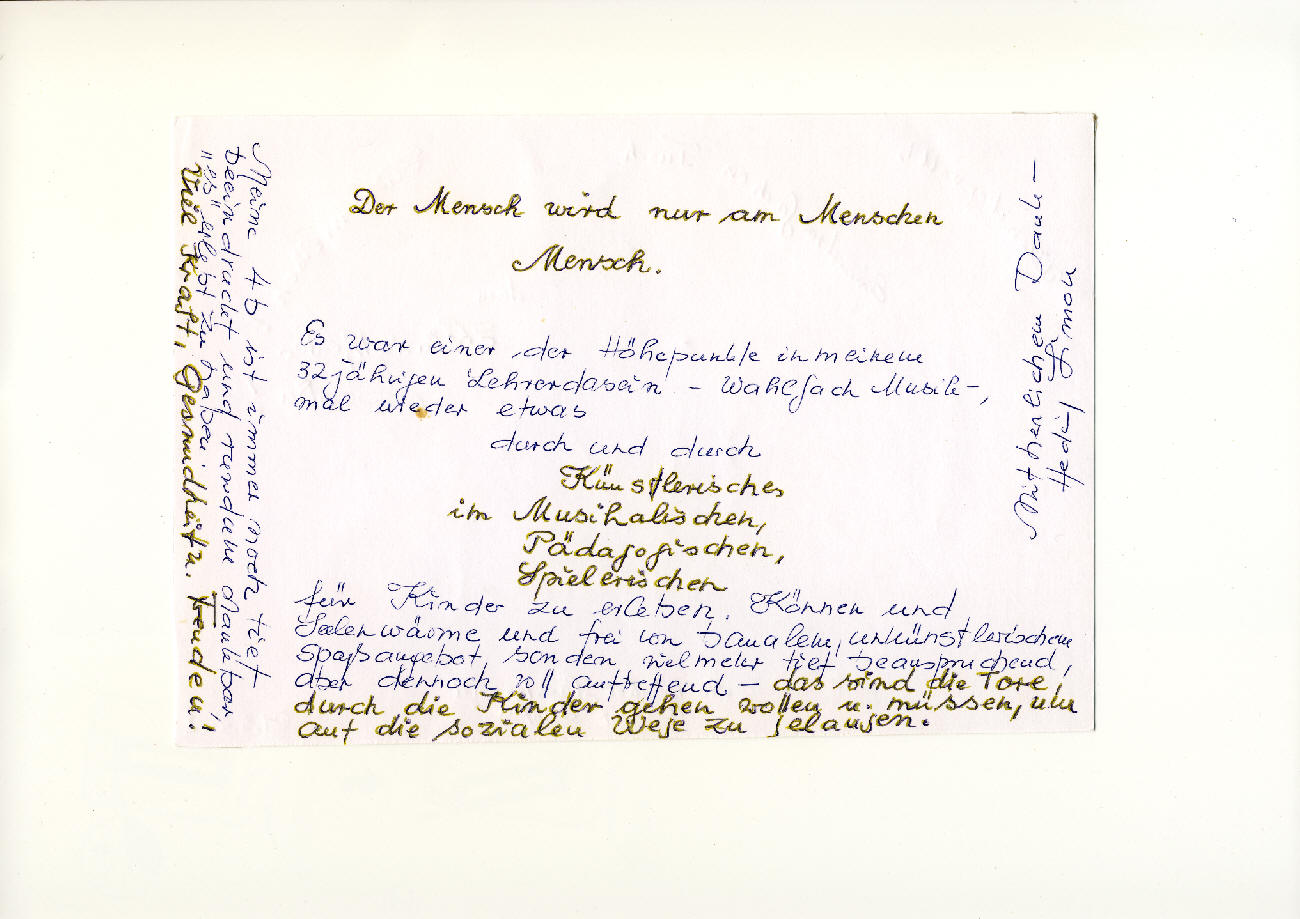 Der Mensch wird nur am Menschen
Mensch.
Es war einer der Höhepunkte in meinem
32jährigen Lehrerdasein – Wahlfach Musik –,
mal wieder etwas
durch und durch
Künstlerisches
im Musikalischen,
Pädagogischen,
Spielerischen
für Kinder zu erleben. Können und
Seelenwärme und frei von banalem, unkünstlerischem
Spaßangebot, sondern vielmehr tief beanspruchend,
aber dennoch voll auftreffend – das sind die Tore,
durch die Kinder gehen wollen u. müssen, um
auf die sozialen Wege zu gelangen.
Meine 4b ist immer noch tief
beeindruckt und rundum dankbar,
"es" erlebt zu haben.
Viel Kraft, Gesundheit u. Freuden!
Mit herzlichem Dank –
Hedi Simon